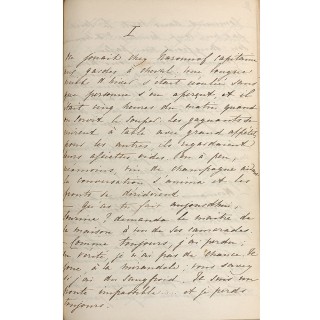 I
On jouait chez Naroumof capitaine
aux gardes à cheval. Une longue
nuit d'hiver s'était écoulée sans
que personne s'en aperçut, et il
était cinq heures du matin quand
on servit le souper. Les gagnants se
mirent à table avec grand appétit
pour les autres, ils regardaient
leurs assiettes vides. Peu à peu,
néanmoins, vin de champagne aidant
la conversation s'anima et les
fronts se déridèrent.
— Qu'as-tu fait aujourd'hui,
Sourine? demanda le maître de
la maison à un de ses camarades.
— Comme toujours, j'ai perdu.
En vérité, je n'ai pas de chance. Je
joue à la mirandole; vous savez
si j'ai du sangfroid. Je suis un
ponte impassible et je perds
toujours.